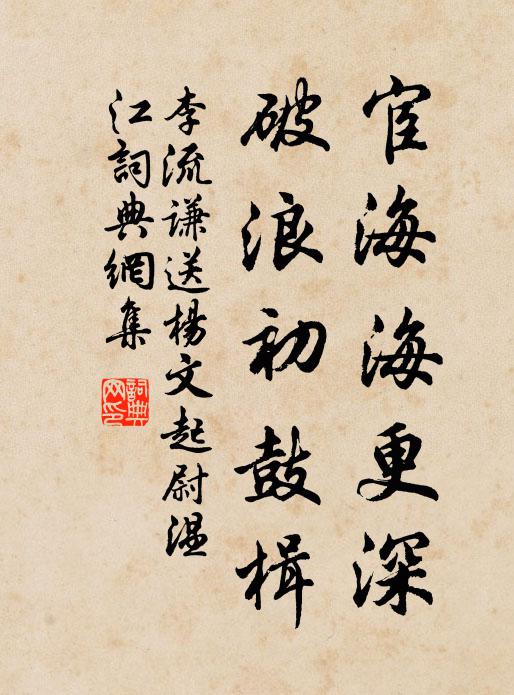 宦海海更深
破浪初鼓楫
李流謙送楊文起尉温
江詞典網集
詞典网印